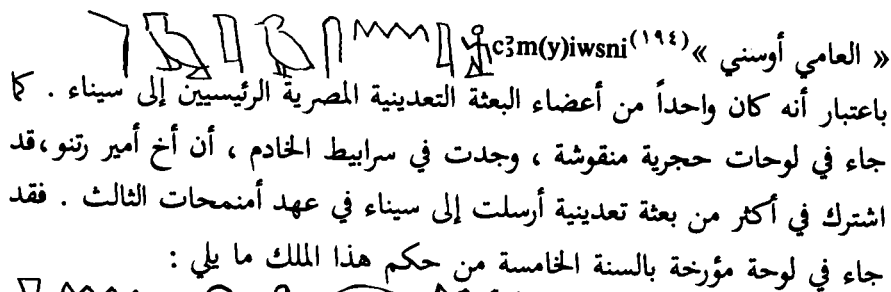 « العامي أوسني » c3m(y)iwsni(١٩٤)
باعتبار أنه كان واحداً من أعضاء البعثة التعدينية المصرية الرئيسيين إلى سيناء . كما
جاء في لوحات حجرية منقوشة ، وجدت في سرابيط الخادم ، أن أخ أمير رتنو ،قد
اشترك في أكثر من بعثة تعدينية أرسلت إلى سيناء في عهد أمنمحات الثالث . فقد
جاء في لوحة مؤرخة بالسنة الخامسة من حكم هذا الملك ما يلي :